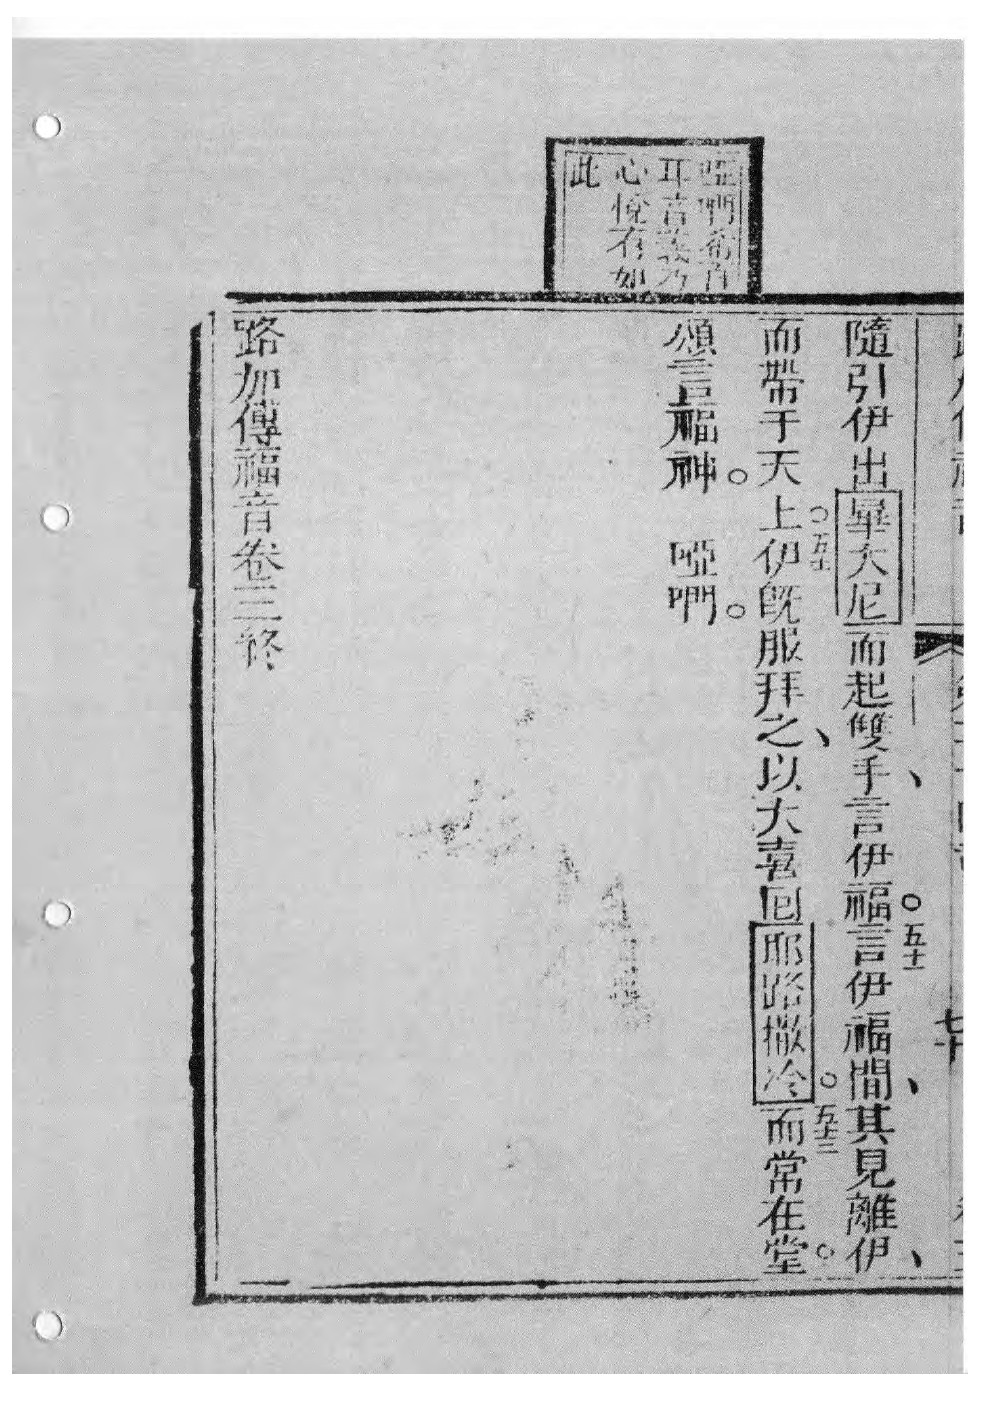 啞嗎希百
耳音義乃
心悅有如
此
隨引伊出畢大尼而起雙手言伊福言伊福間其見離伊
五十一
而帶于天上伊既服拜之以大喜囘耶路撒冷而常在堂
五十二
五十三
頌言福神 啞嗎
路加傳福音卷三終
七十